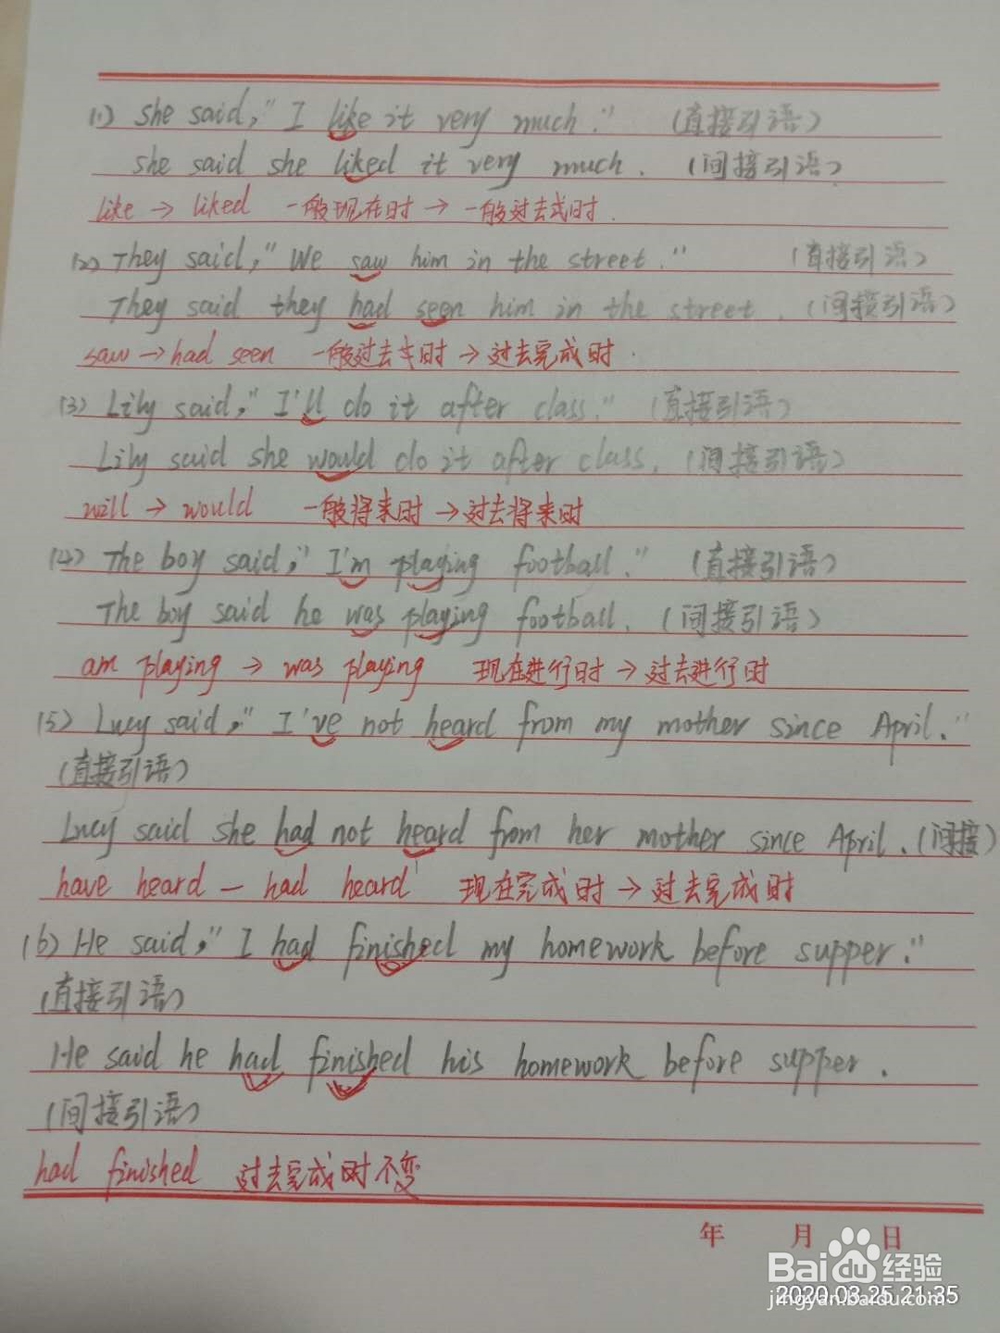 (1) she said, "I like it very much." (直接引语)
she said she liked it very much. (间接引语)
like → liked 一般现在时 → 一般过去式时.
(2) They said, "We saw him in the street." (直接引语)
They said they had seen him in the street. (间接引语)
saw → had seen 一般过去时 → 过去完成时.
(3) Lily said, "I'll do it after class." (直接引语)
Lily said she would do it after class. (间接引语)
will → would 一般将来时 → 过去将来时
(4) The boy said, "I'm playing football." (直接引语)
The boy said he was playing football. (间接引语)
am playing → was playing 现在进行时 → 过去进行时
(5) Lucy said, "I've not heard from my mother since April."
(直接引语)
Lucy said she had not heard from her mother since April. (间接)
have heard — had heard 现在完成时 → 过去完成时
(6) He said, "I had finished my homework before supper."
(直接引语)
He said he had finished his homework before supper.
(间接引语)
had finished 过去完成时不变
年 月 日
Baidu经验
2020.03.25 21:35
jingyan.baidu.com